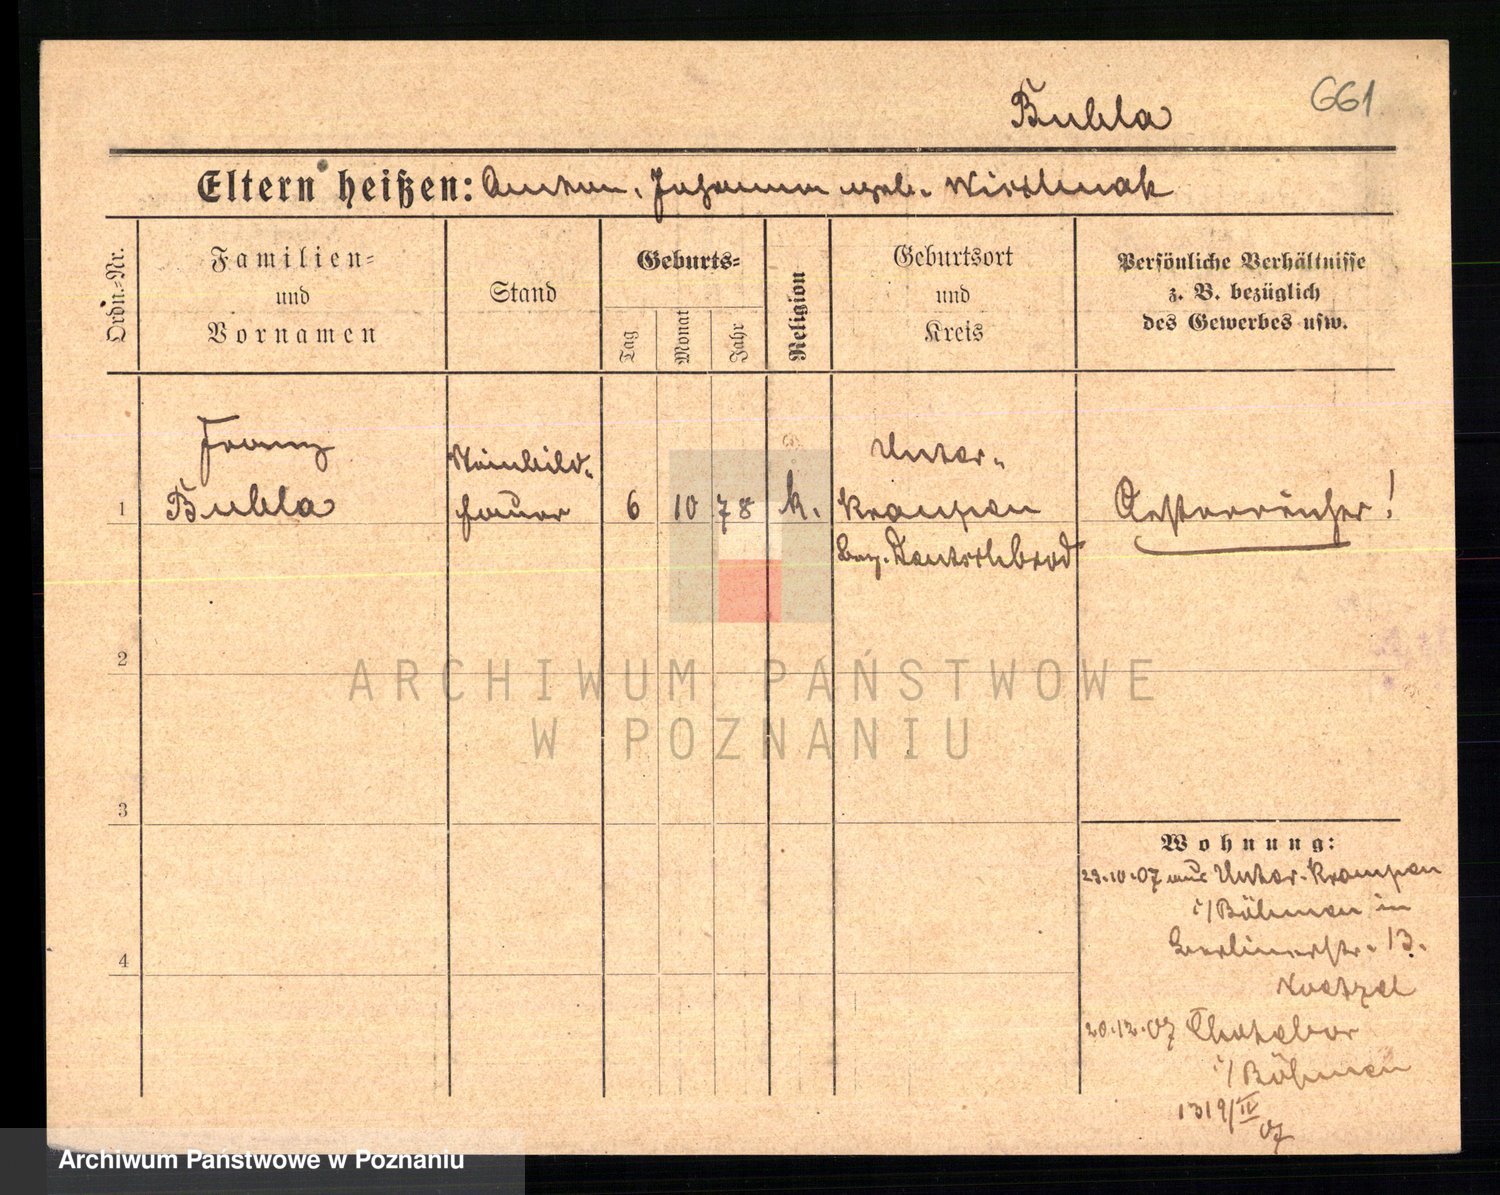 Bubla
661
Eltern heißen: Anton, Johanna geb. Wirthnak
Ordn.-Nr.
Familien-
und
Vornamen
Stand
Geburts-
Tag
Monat
Jahr
Religion
Geburtsort
und
Kreis
Persönliche Verhältnisse
z. B. bezüglich
des Gewerbes usw.
1
Franz
Bubla
Steinbild-
hauer
6
10
78
k.
Unter-
Kraupen
Bez. Deutschbrod
Oesterreicher!
2
3
4
ARCHIWUM PAŃSTWOWE
W POZNANIU
Wohnung:
23.10.07 aus Unter-Kraupen
i/Böhmen in
Berlinerstr. 13.
20.12.07 Chotebor
i/Böhmen
1319/IV
07
Archiwum Państwowe w Poznaniu